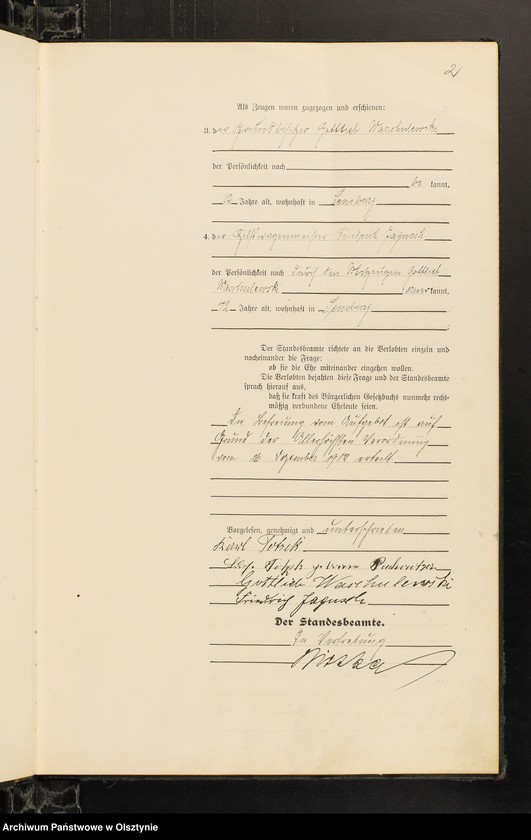 2
Als Zeugen waren zugezogen und erschienen:
3. der Grundbesitzer Gottlieb Waschulewski
der Persönlichkeit nach
be kannt,
Jahre alt, wohnhaft in Sensburg
4. der Friedrich Jagusch
der Persönlichkeit nach durch den Gottlieb
Waschulewski kannt,
42 Jahre alt, wohnhaft in Sensburg
Der Standesbeamte richtete an die Verlobten einzeln und
nacheinander die Frage:
ob sie die Ehe miteinander eingehen wollen.
Die Verlobten bejahten diese Frage und der Standesbeamte
sprach hierauf aus,
daß sie kraft des Bürgerlichen Gesetzbuchs nunmehr recht-
mäßig verbundene Eheleute seien.
Die Befreiung vom Aufgebot ist auf
Grund der Allerhöchsten Verordnung
vom 16 Dezember 1912 erteilt.
Vorgelesen, genehmigt und unterschrieben
Karl
geborene
Gottlieb Waschulewski
Friedrich Jagusch
Der Standesbeamte.
In Vertretung
Archiwum Państwowe w Olsztynie